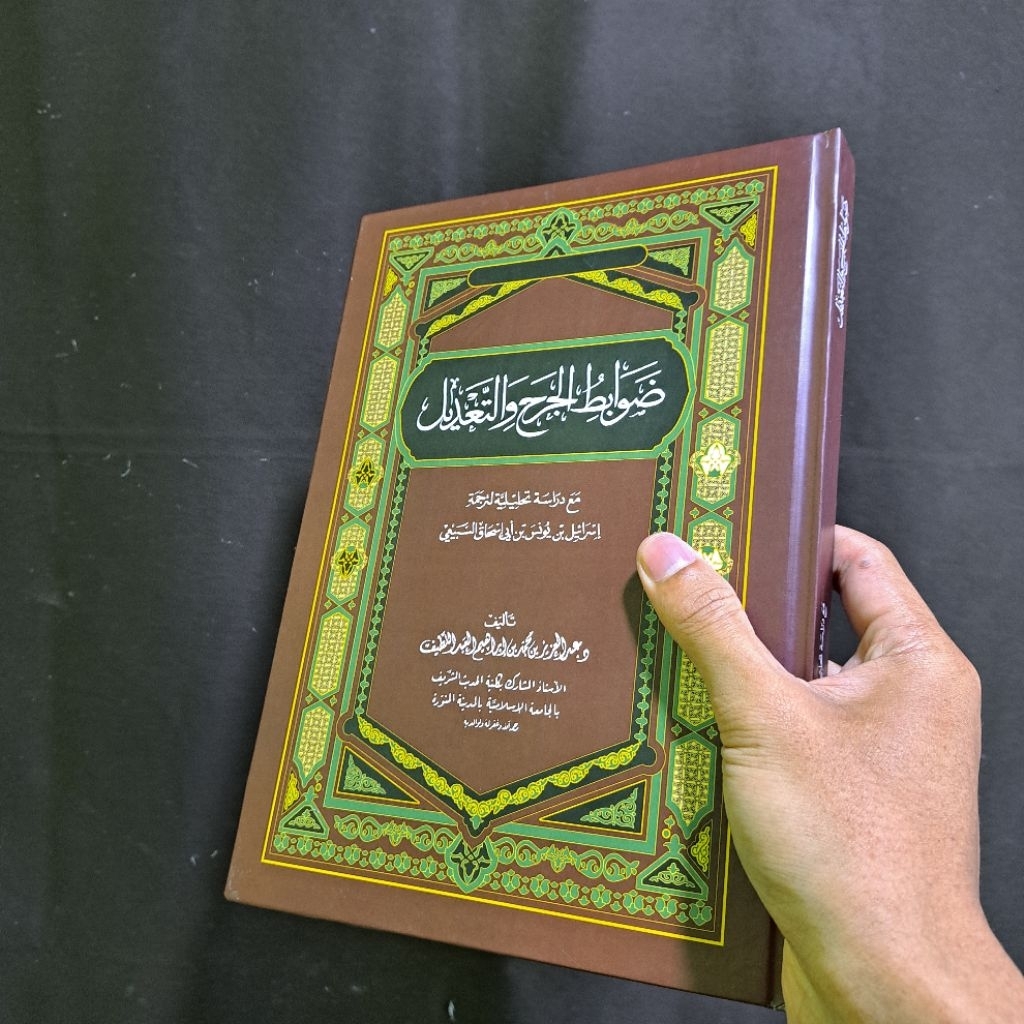 ضَوَابِطُ الجَرحِ وَالتَّعْدِيلِ
مَعَ دِرَاسَة تَحْلِيْلِيَّة لِتَرجَمَةِ
إِسْرَائِيل بْن يُونُسَ بْن أَبِي إِسْحَاق السَّبِيعِيّ
تَأليْف
د. عبد العزيز بن محمد بن إبراهيم العبد اللطيف
الأستاذ المشارك بكلية الحديث الشريف
بالجامعة الإسلامية بالمدينة المنورة